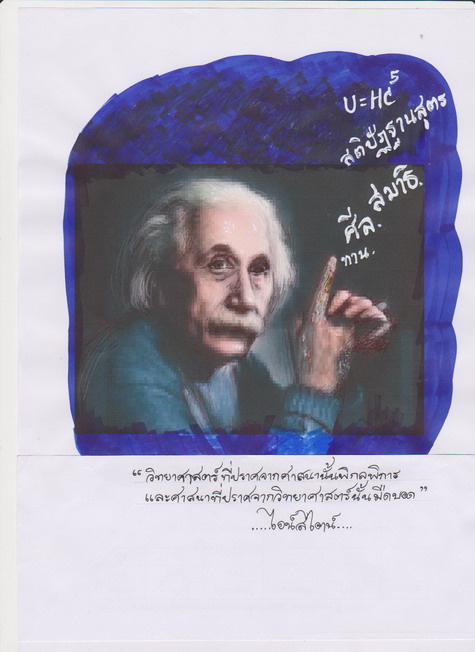 U=HC⁵
สติปัฏฐานสูตร
สมาธิ.
ศีล.
ทาน.
“วิทยาศาสตร์ที่ปราศจากศาสนานั้นพิกลพิการ
และศาสนาที่ปราศจากวิทยาศาสตร์นั้นมืดบอด”
.....ไอน์สไตน์....